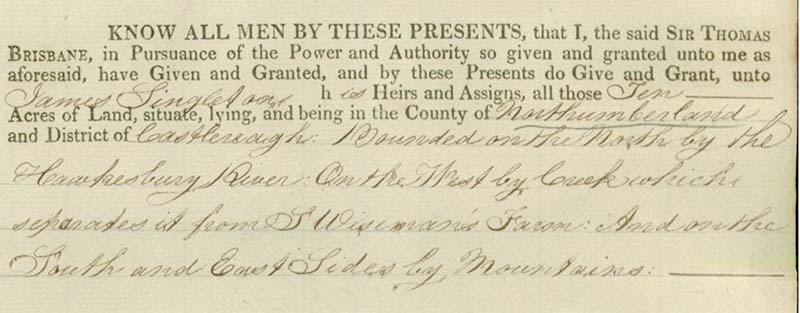 KNOW ALL MEN BY THESE PRESENTS, that I, the said SIR THOMAS
BRISBANE, in Pursuance of the Power and Authority so given and granted unto me as
aforesaid, have Given and Granted, and by these Presents do Give and Grant, unto
James Singleton h is Heirs and Assigns, all those Ten
Acres of Land, situate, lying, and being in the County of Northumberland
and District of Castlereagh: Bounded on the North by the
Hawkesbury River: On the West by Creek which
separates it from S Wiseman's Farm: And on the
South and East Sides by Mountains: